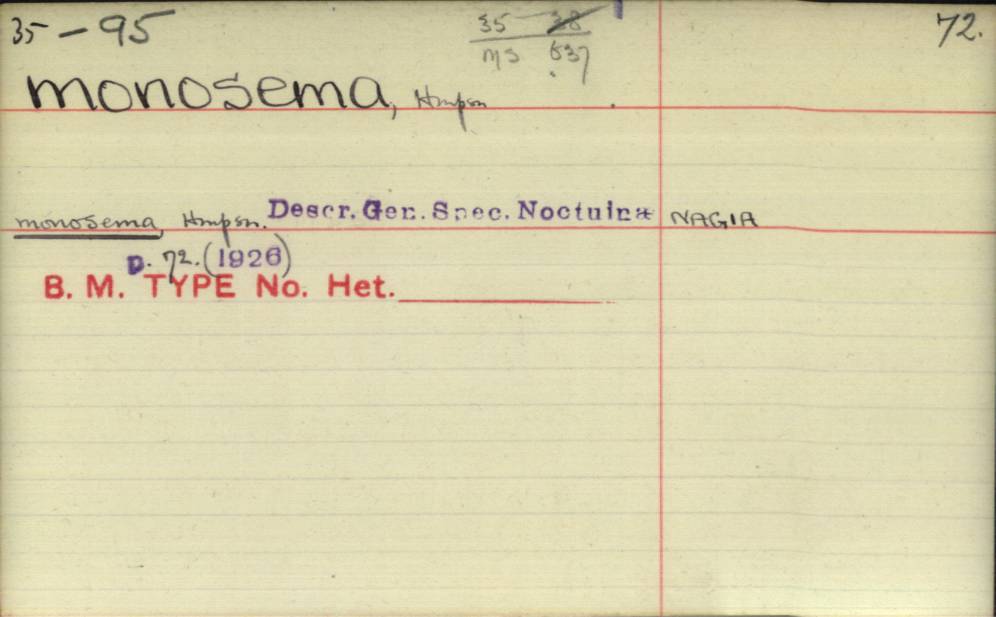 35-95 35 38 72.
MS 637
monosema, Hmpsn
monosema, Hmpsn. Descr. Gen. Spec. Noctuinæ NAGIA
p. 72. (1926)
B. M. TYPE No. Het.